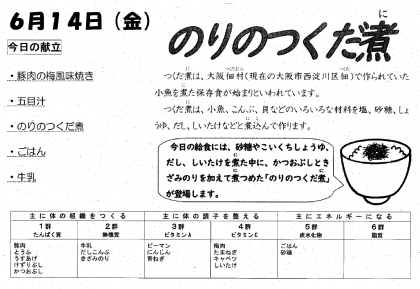 6月14日（金）
のりのつくだ煮
に
今日の献立
・豚肉の梅風味焼き
・五目汁
・のりのつくだ煮
・ごはん
・牛乳
つくだ煮は、大阪佃村（現在の大阪市西淀川区佃）で作られていた
小魚を煮た保存食が始まりといわれています。
つくだ煮は、小魚、こんぶ、貝などのいろいろな材料を塩、砂糖、しょ
うゆ、だし、しいたけなどと煮込んで作ります。
今日の給食には、砂糖やこいくちしょうゆ、
だし、しいたけを煮た中に、かつおぶしとき
ざみのりを加えて煮つめた「のりのつくだ煮」
が登場します。
主に体の組織をつくる 主に体の調子を整える 主にエネルギーになる
1群 2群 3群 4群 5群 6群
たんぱく質 無機質 ビタミンA ビタミンC 炭水化物 脂質
豚肉 牛乳 ピーマン 梅肉 ごはん
とうふ だしこんぶ にんじん たまねぎ 砂糖
うすあげ きざみのり 青ねぎ キャベツ
けずりぶし しいたけ
かつおぶし